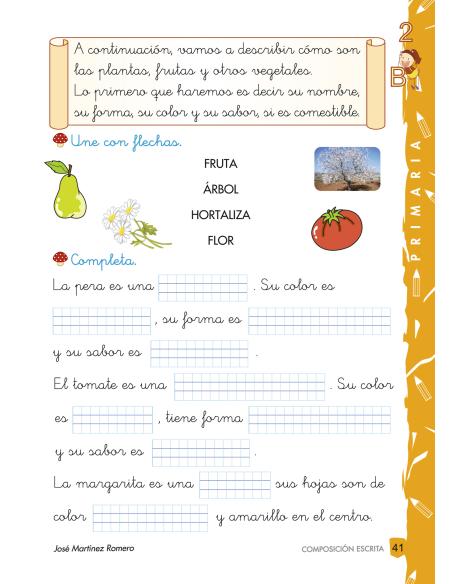 A continuación, vamos a describir cómo son
las plantas, frutas y otros vegetales.
Lo primero que haremos es decir su nombre,
su forma, su color y su sabor, si es comestible.
2
B
PRIMARIA
Une con flechas.
FRUTA
ÁRBOL
HORTALIZA
FLOR
Completa.
La pera es una . Su color es
, su forma es
y su sabor es .
El tomate es una . Su color
es , tiene forma
y su sabor es .
La margarita es una sus hojas son de
color y amarillo en el centro.
José Martínez Romero
COMPOSICIÓN ESCRITA 41